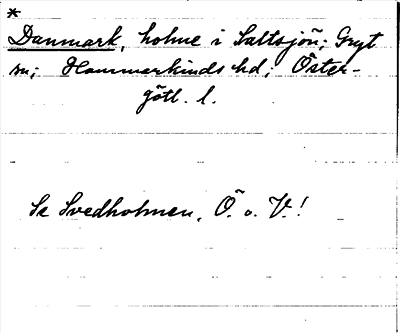 *
Danmark, holme i Saltsjön; Gryt
sn; Hammarkinds hd; Öster-
götl. l.
Se Svedholmen, Ö. o. V.!